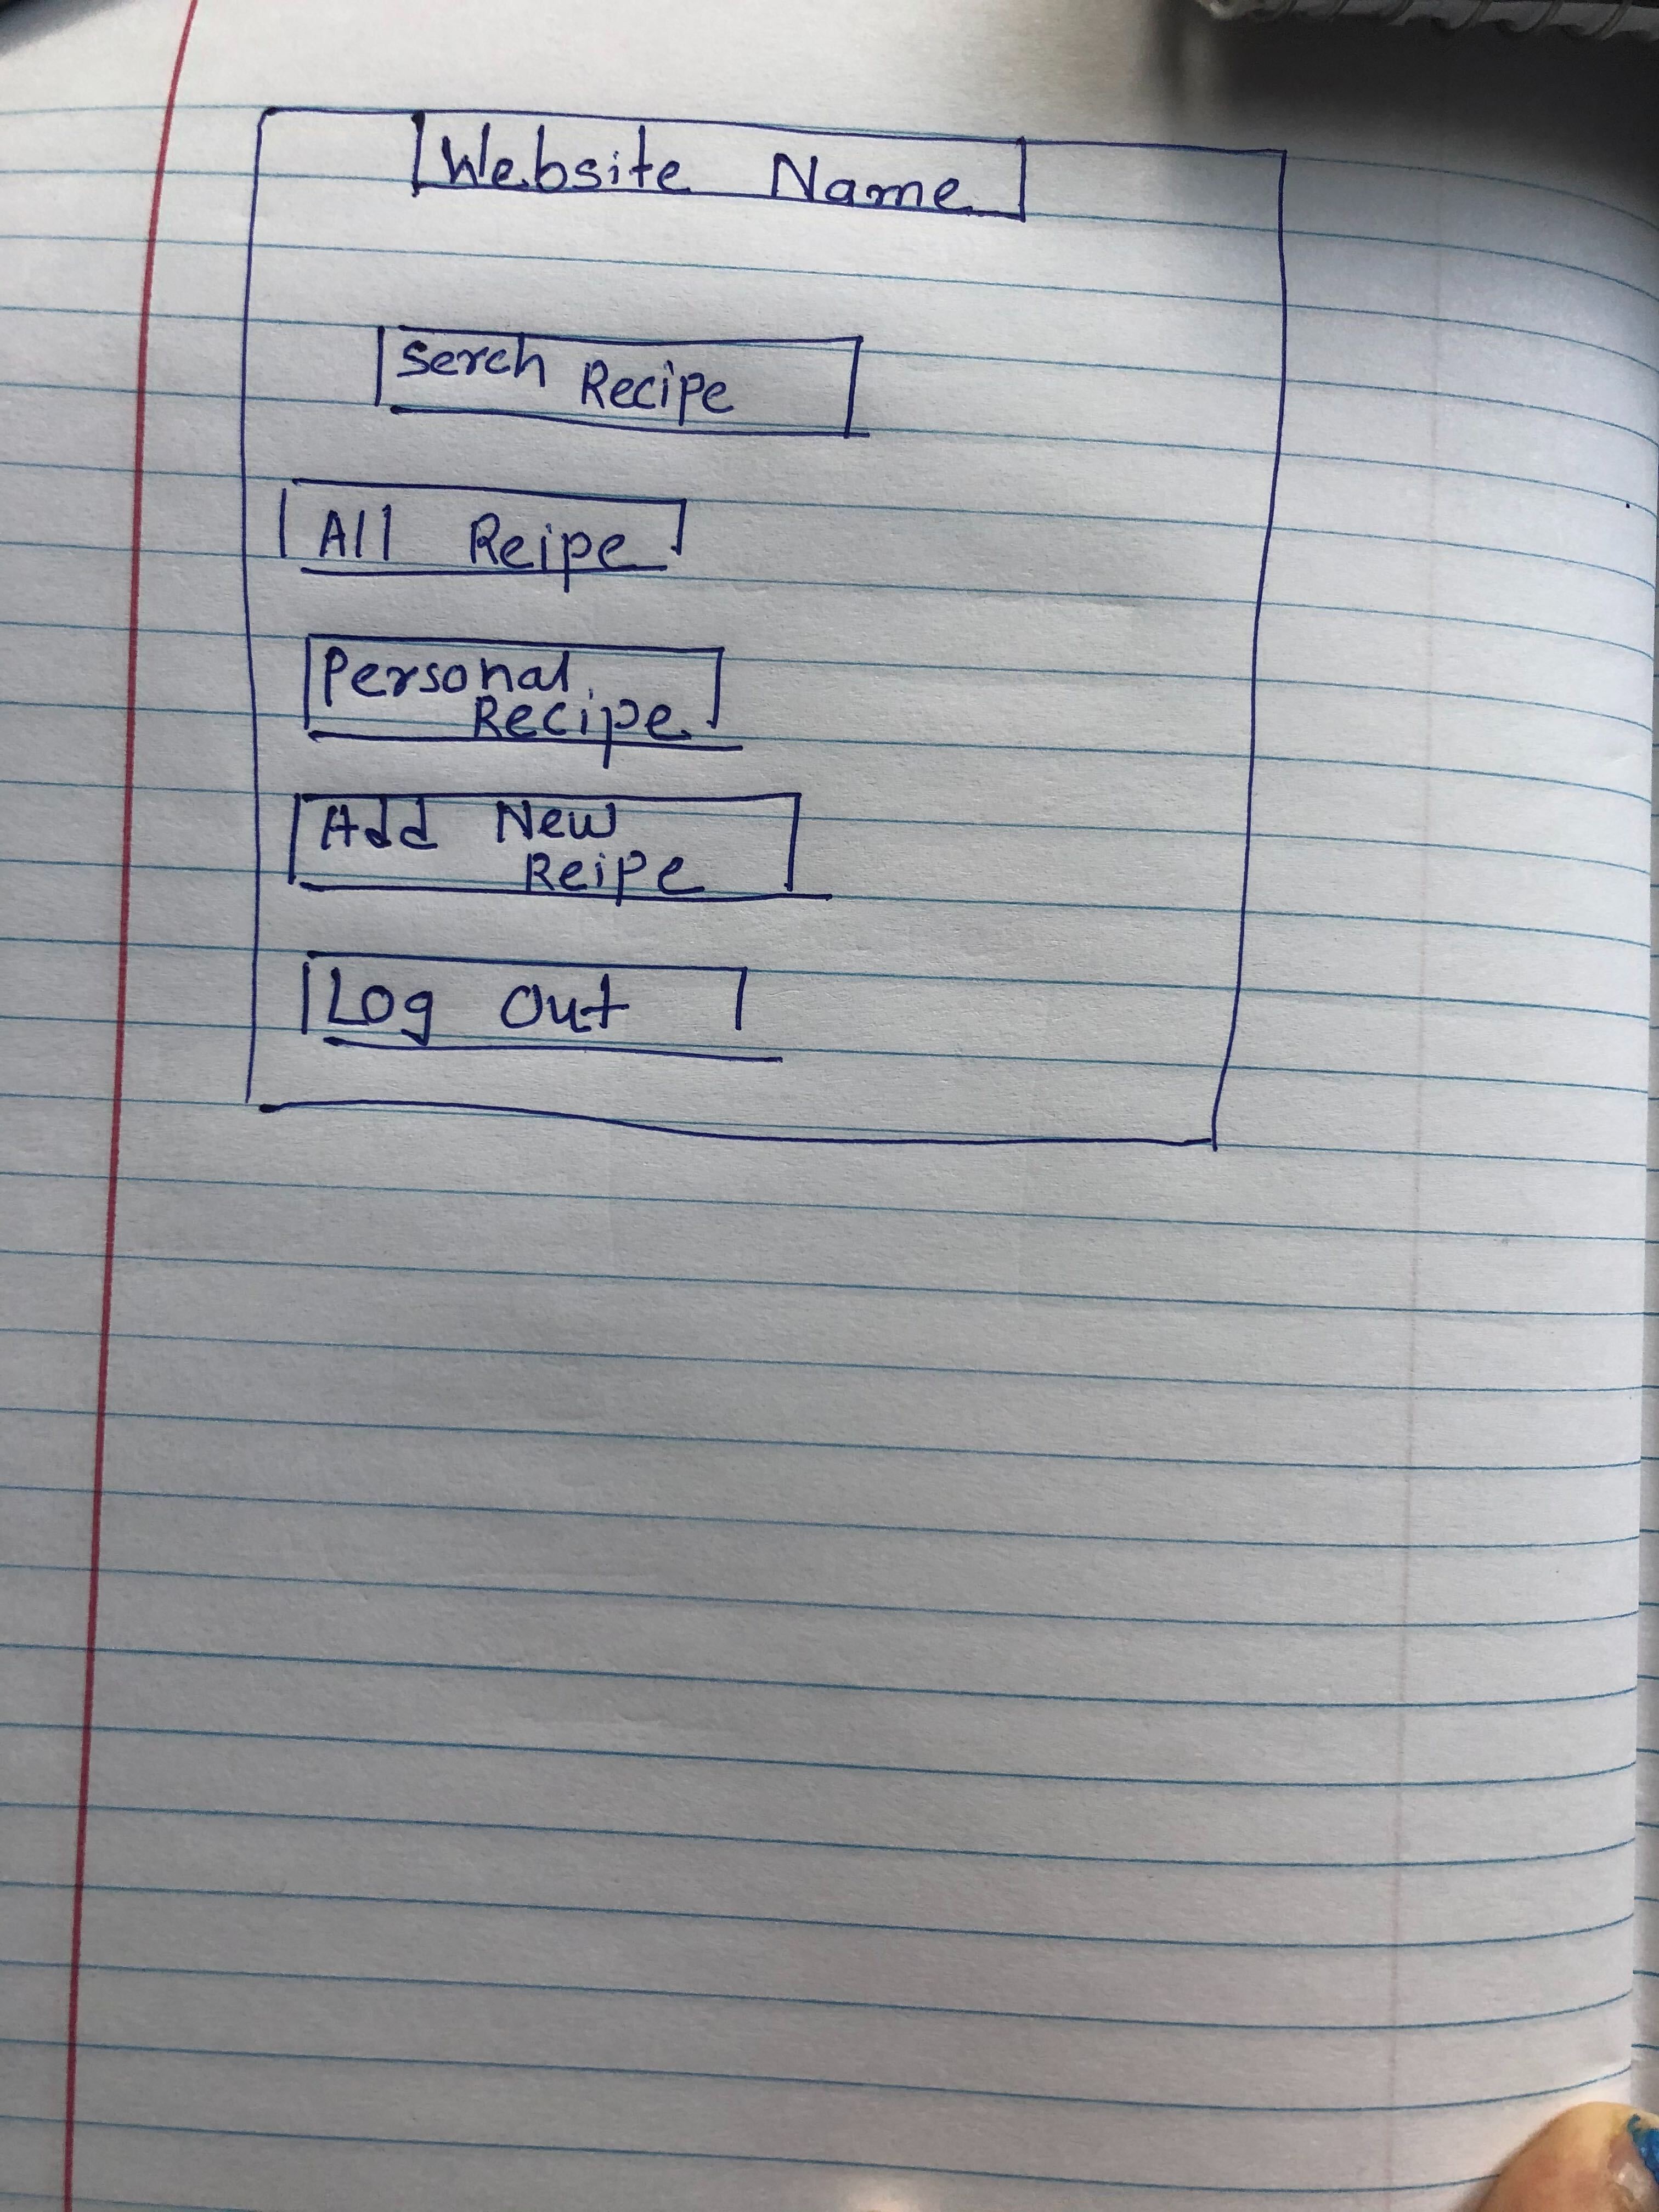 Website Name
Serch Recipe
All Reipe
Personal
Recipe
Add New
Reipe
Log Out